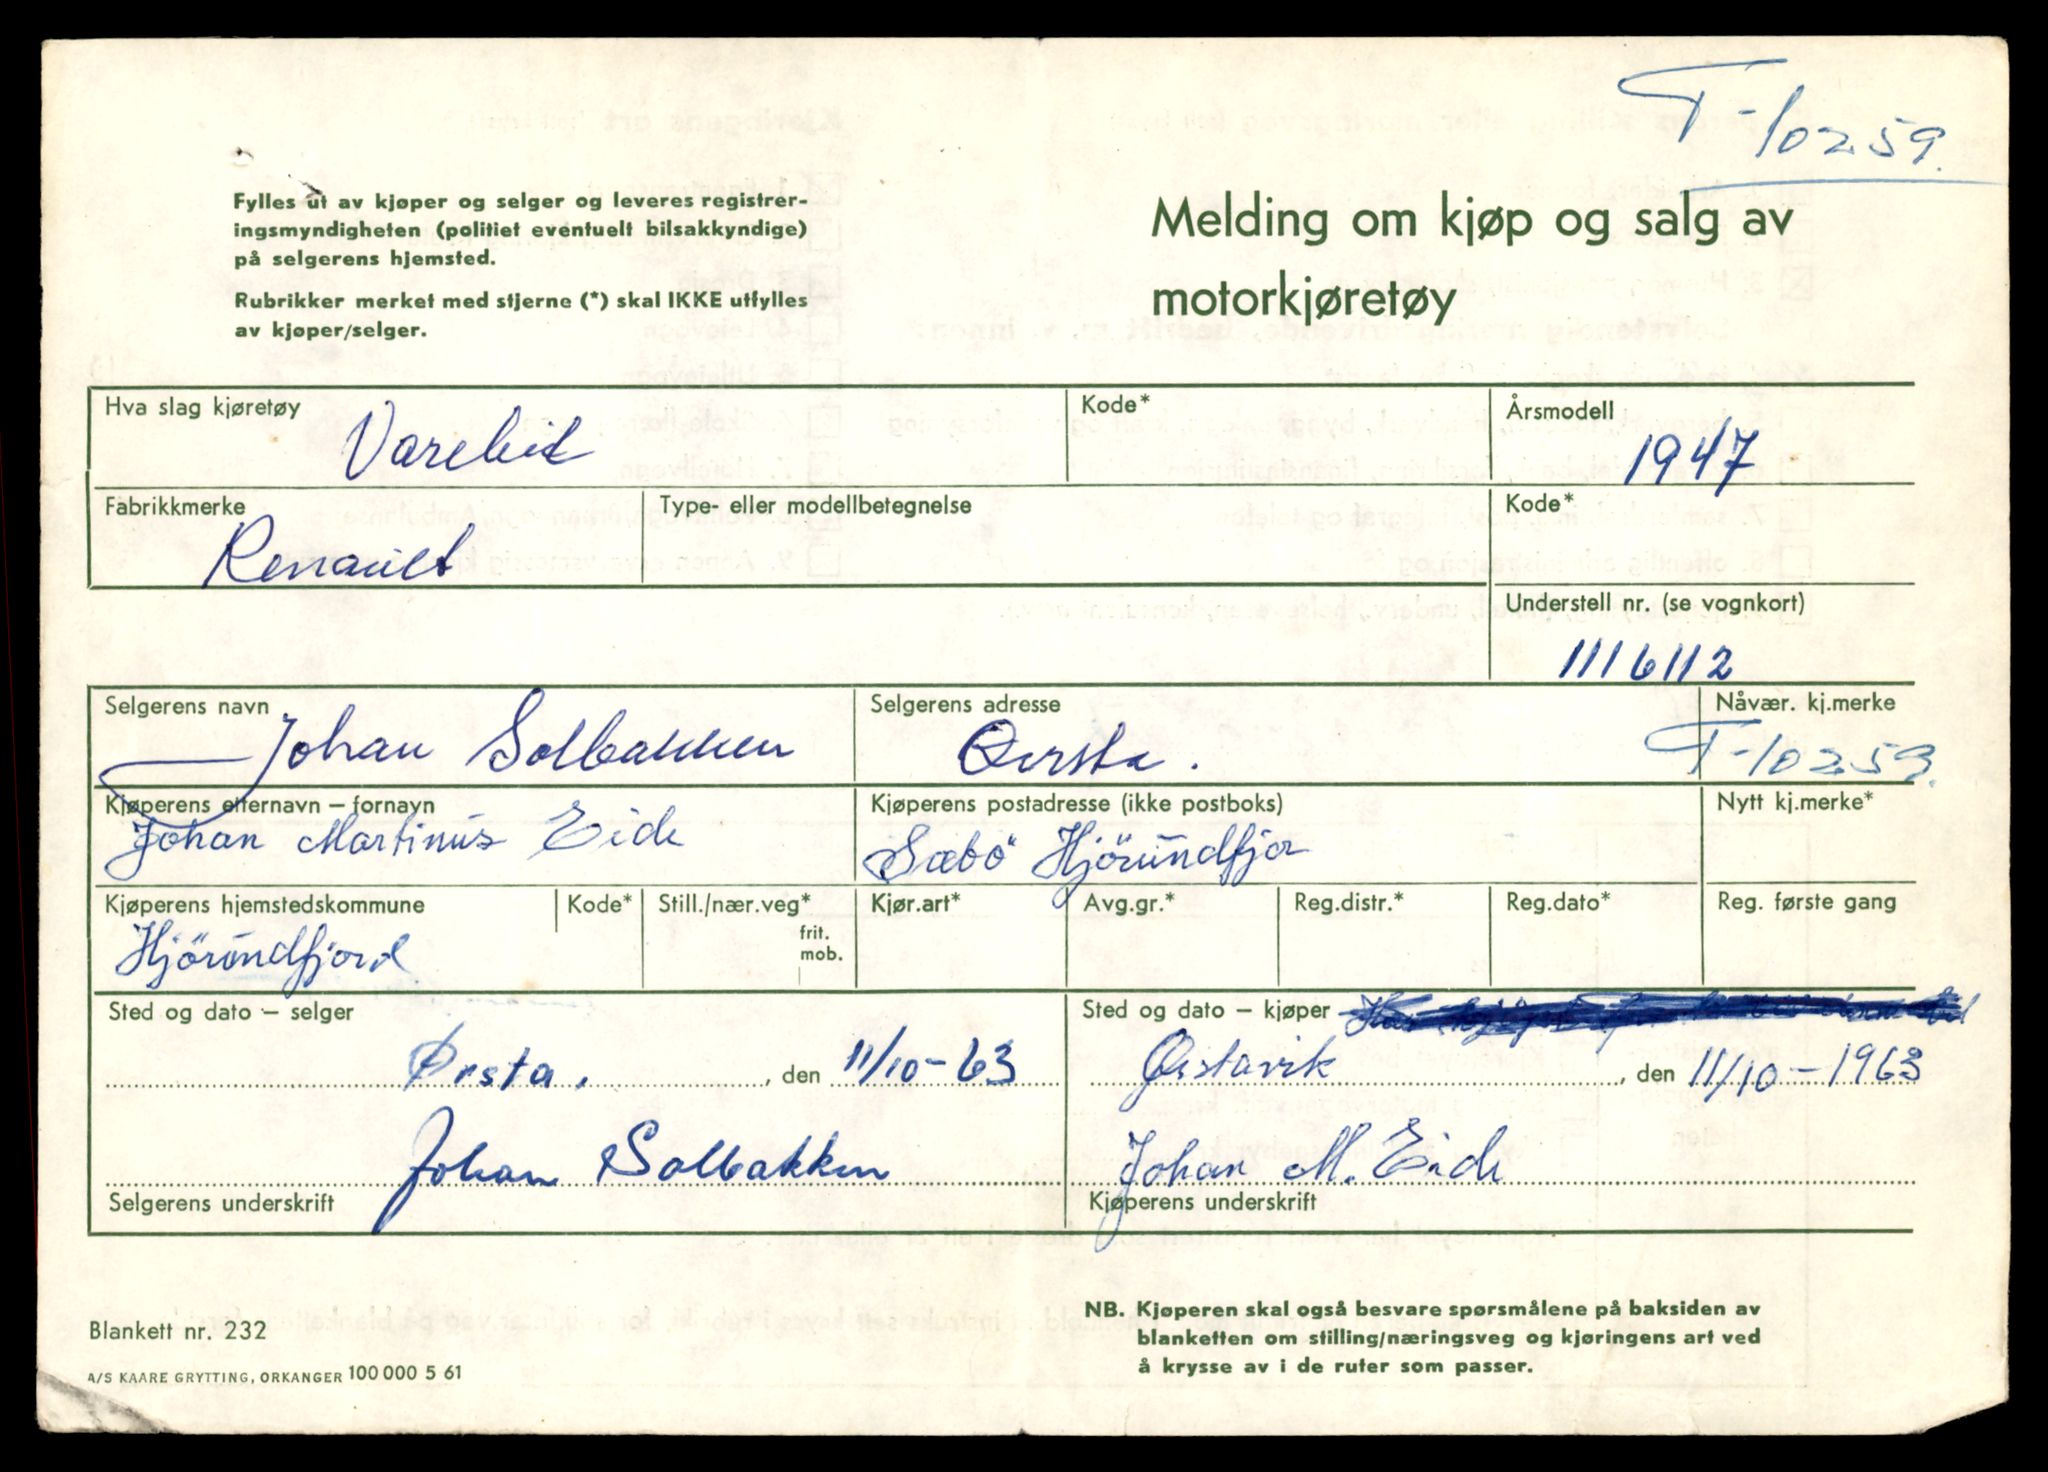 T-10259.
Fylles ut av kjøper og selger og leveres registrer-
ingsmyndigheten (politiet eventuelt bilsakkyndige)
på selgerens hjemsted.
Rubrikker merket med stjerne (*) skal IKKE utfylles
av kjøper/selger.
Melding om kjøp og salg av
motorkjøretøy
Hva slag kjøretøy
Varebil
Kode*
Årsmodell
1947
Fabrikkmerke
Renault
Type- eller modellbetegnelse
Kode*
Understell nr. (se vognkort)
1116112
Selgerens navn
Johan Solbakken
Selgerens adresse
Ørsta.
Nåvær. kj.merke
T-10259.
Kjøperens etternavn – fornavn
Johan Martinus Eide
Kjøperens postadresse (ikke postboks)
Sæbö Hjörundfjor
Nytt kj.merke*
Kjøperens hjemstedskommune
Hjörundfjord
Kode*
Still./nær.veg*
frit.
mob.
Kjør.art*
Avg.gr.*
Reg.distr.*
Reg.dato*
Reg. første gang
Sted og dato – selger
Ørsta, den 11/10-63
Johan Solbakken
Selgerens underskrift
Sted og dato – kjøper
Ørstavik, den 11/10-1963
Johan M. Eide
Kjøperens underskrift
Blankett nr. 232
A/S KAARE GRYTTING, ORKANGER 100 000 5 61
NB. Kjøperen skal også besvare spørsmålene på baksiden av
blanketten om stilling/næringsveg og kjøringens art ved
å krysse av i de ruter som passer.